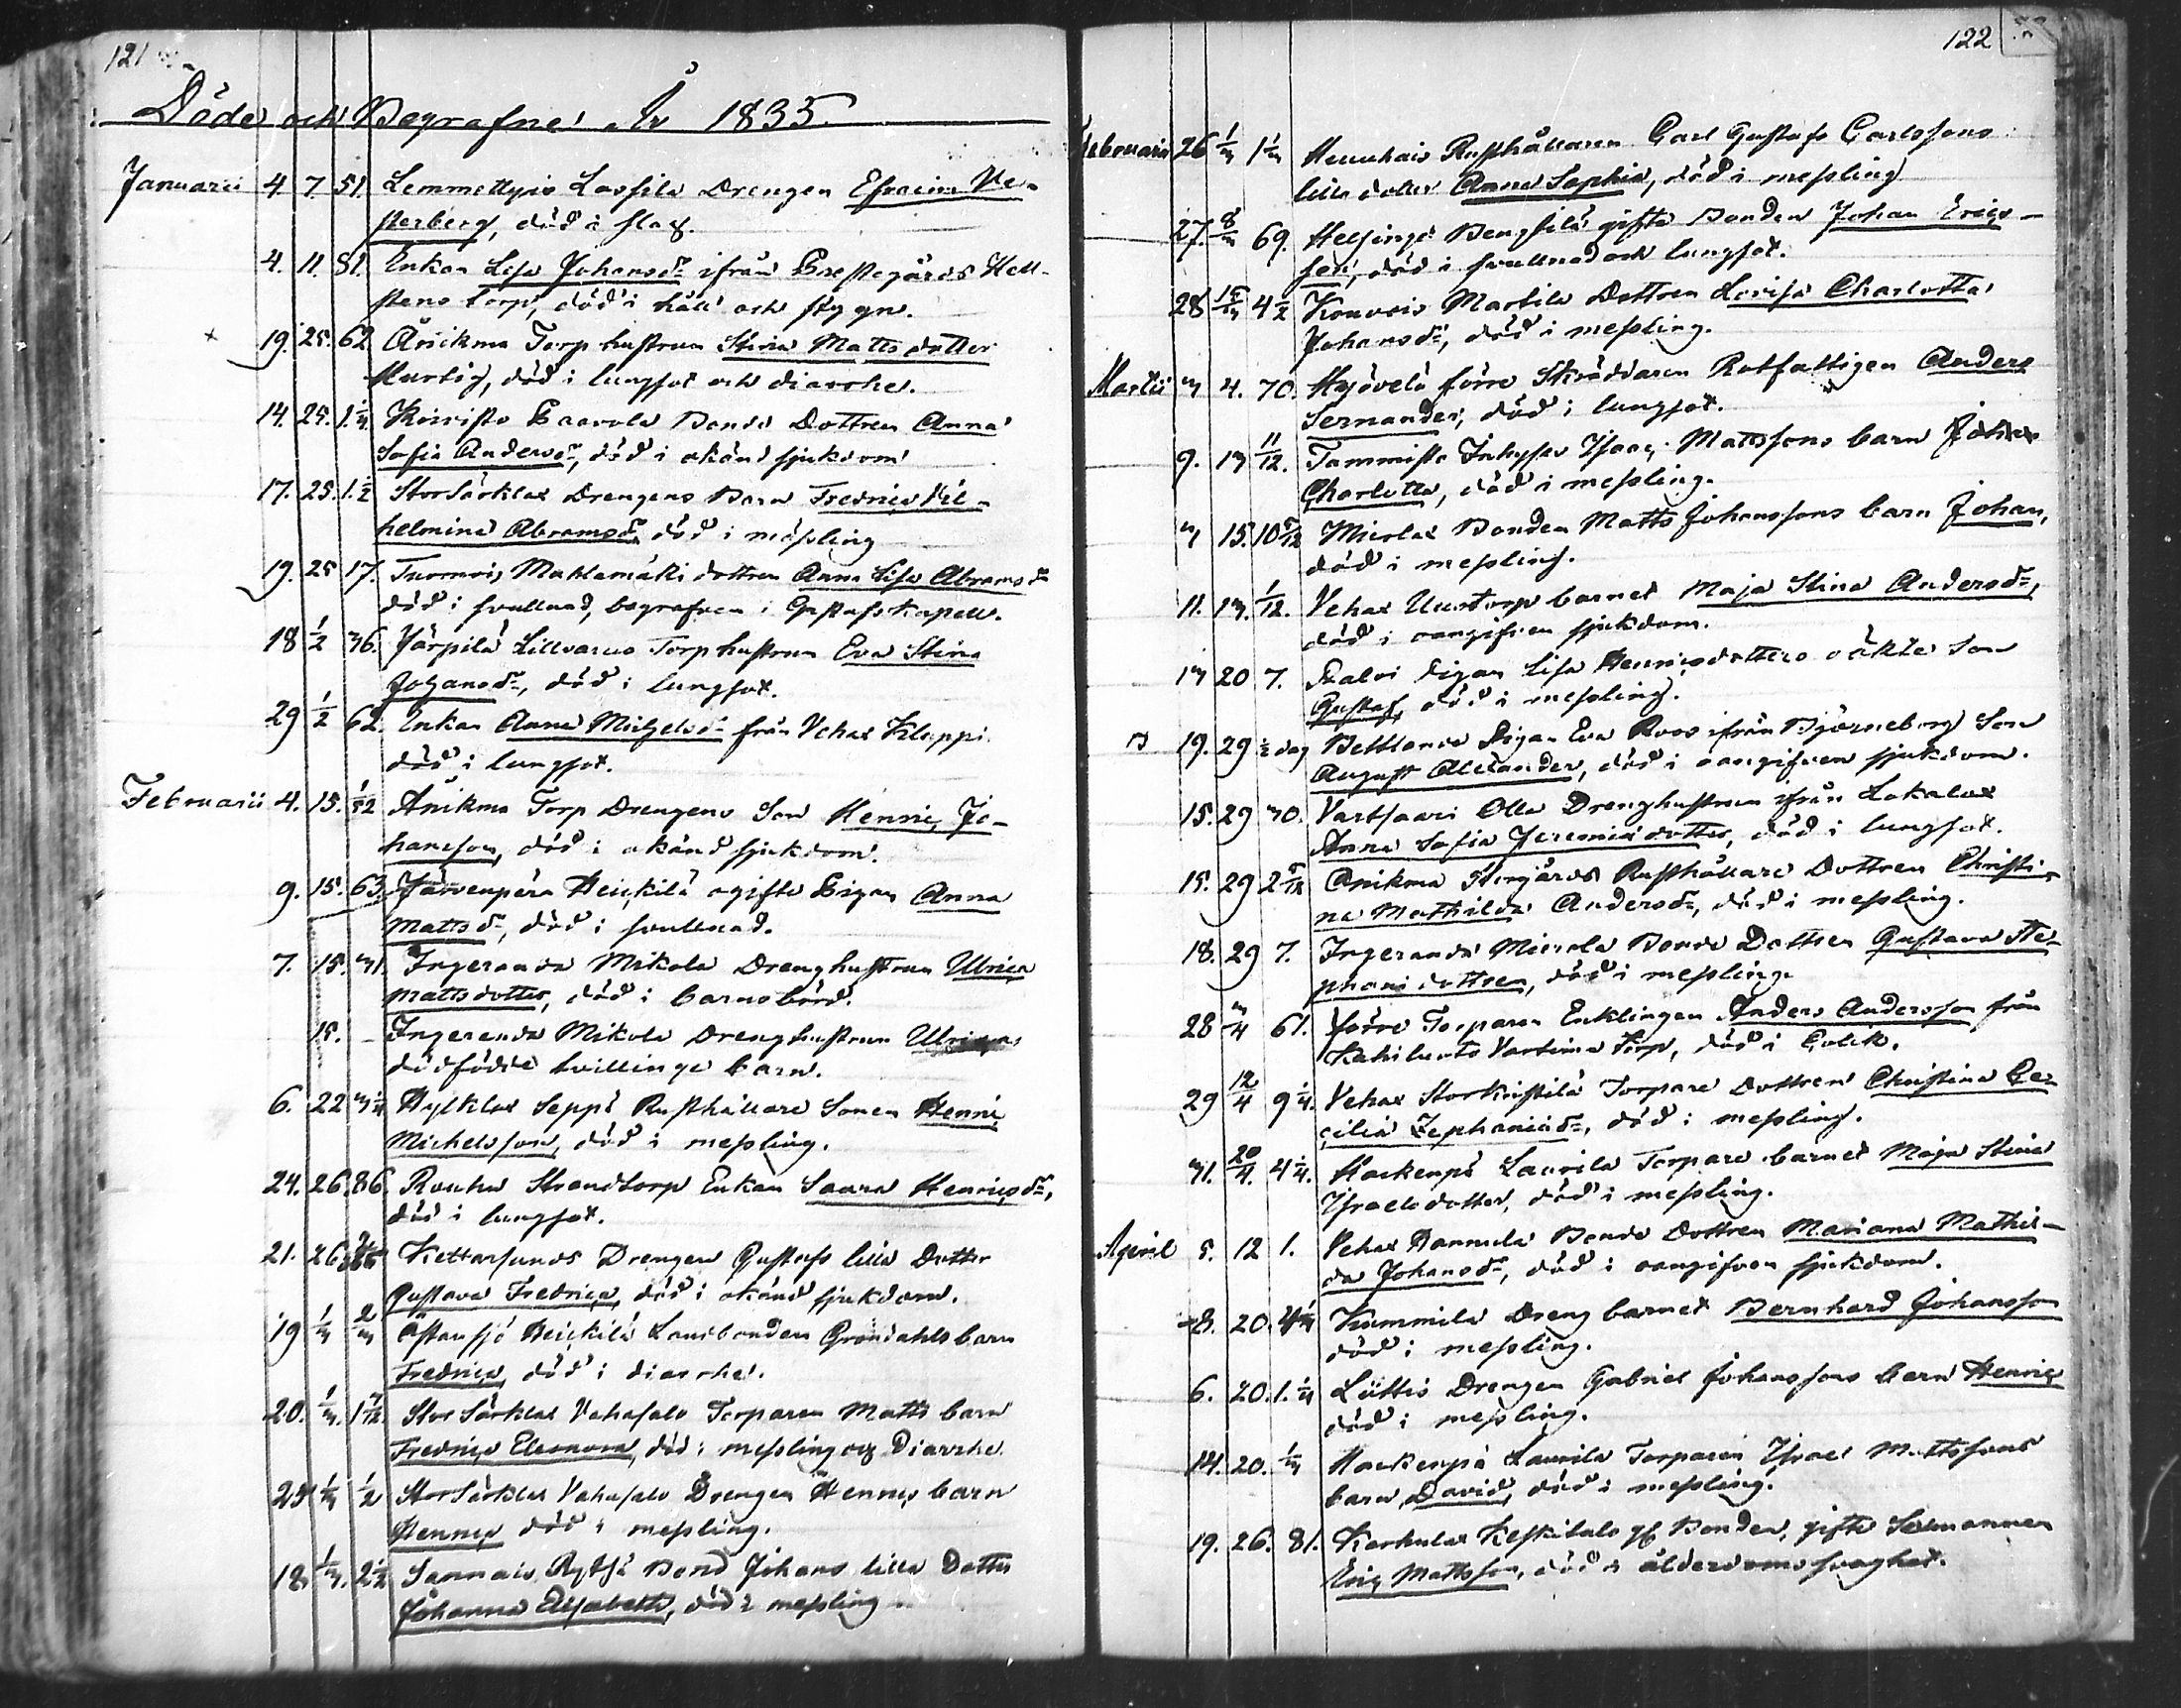 121
Döde och Begrafne År 1835.
Januarii 4. 7. 51. Lemmettyis Lassila Drengen Efraim We-
sterberg, död i slag.
4. 11. 81. Enkan Lisa Johansdr ifrån Prestegårds Hell-
stens torp, död i håll och stygn.
19. 25. 62. Anikma Torp hustrun Stina Matts dotter
Murtig, död i lungsot och diarrhe.
14. 25. 1 1/4. Koivisto Paavola Bonde Dottren Anna
Sofia Andersdr, död i okänd sjukdom
17. 25. 1. 1/2 Stor Särklax Drengens Barn Fredrica Vil-
helmina Abramsdr död i mässling
19. 25 17. Tuomois Mahlamäki dottren Anna Lisa Abramsdr
död i svullnad, begrafven i Gustafs Kapell.
18 1/2 36. Järpilä Lillvarus Torphustrun Eva Stina
Johansdr, död i lungsot.
29 1/2 62. Enkan Anna Michelsdr från Vehax Kluppi
död i lungsot.
Februarii 4. 15. 1/52 Anikma Torp Drengens Son Henric Jo-
hansson, död i okänd sjukdom.
9. 15. 63. Järvenperä Heickilä ogifta Pigan Anna
Mattsdr, död i svullnad.
7. 15. 31. Ingeranda Mikola Drenghustrun Ulrica
Mattsdotter, död i barnsbörd.
15. - Ingeranda Mikola Drenghustrun Ulricas
dödfödde tvillinge barn.
6. 22 3 1/4 Hylklax Seppä Rusthållare Sonen Henric
Michelsson, död i messling.
24. 26. 86. Rouhu Strandtorp Enkan Saara Henricsdr,
död i lungsot.
21. 26 Kettarsunds Drengen Gustafs lilla Dotter
Gustava Fredrica, död i okänd sjukdom.
19 1/3 2/3 Östansjö Heickilä Landbonden Gröndahls barn
Fredrica, död i diarrhe.
20. 1/3. 1 7/12. Stor Särklax Vahasalo Torparen Matts barn
Fredrica Eleonora, död i messling och Diarrhe.
25 1/3 1/2 Stor Särklax Vahasalo Drengen Henrics barn
Henrica död i messling.
18 1/3. 2 1/2 Sannais Rytsä Bond Johans lilla Dotter
Johanna Elisabeth, död i messling
122
Februarii 26 1/3 1 1/3 Rusthållaren Carl Gustafs Carlssons
lilla dotter Anna Sophia, död i messling
27. 8/3 69. Helsinge Bengtilä gifte Bonden Johan Erics-
son, död i svullnad och lungsot.
28 15/3 4 1/2 Kouvois Martila Dottren Lovisa Charlotta
Johansdr, död i messling.
Martii 3 4. 70. Myövelä förre Skräddaren Rotfattigen Anders
Sernander, död i lungsot.
9. 13 11/12. Tammisto Inhyses Isaac Mattssons barn Johan
Charlotta, död i messling.
3 15. 10 5/12 Mierlax Bonden Matts Johanssons barn Johan,
död i messling.
11. 13. 1/12. Vehax Uustorp barnet Maja Stina Andersdr,
död i oangifven sjukdom.
13 20 7. Palvi Pigan Lisa Henricsdotters oäkta Son
Gustaf, död i messling.
19. 29 1/2 dag Bettlande Pigan Eva Roos ifrån Björneborg Son
August Alexander, död i oangifven sjukdom.
15. 29 30. Vartsaari Olla Drenghustrun ifrån Lokalax
Anna Sofia Jeremiædotter, död i lungsot.
15. 29 2 5/12 Anikma Storgårds Rusthållare Dottren Christi-
na Mathilda Andersdr, död i messling.
18. 29 7. Ingeranda Mierola Bonde Dottren Gustava Ste-
phani dottren, död i messling.
28 3/4 61. förre Torparen Enklingen Anders Andersson från
Kahiluoto Vartima Torp, död i Colik.
29 12/4 9 1/4. Vehax Storkistilä Torpare Dottren Christina Ce-
cilia Zephaniædr, död i messling.
31. 20/4. 4 1/4. Hackenpä Laurila Torpare barnet Maja Stina
Israelsdotter, död i messling.
April 5. 12 1. Vehax Hannula Bonde Dottren Mariana Mathil-
da Johansdr, död i oangifven sjukdom.
8. 20. Kummila Dreng barnet Bernhard Johansson
död i messling.
6. 20. 1. 1/4 Lättis Drengen Gabriel Johanssons barn Henric
död i messling.
14. 20. 1/3 Hackenpä Laurila Torparen Israel Mattssons
barn, David, död i messling.
19. 26. 81. Karhulax Keskitalo gl Bonden, gifte Sexmannen
Eric Mattsson, död i ålderdoms svaghet.